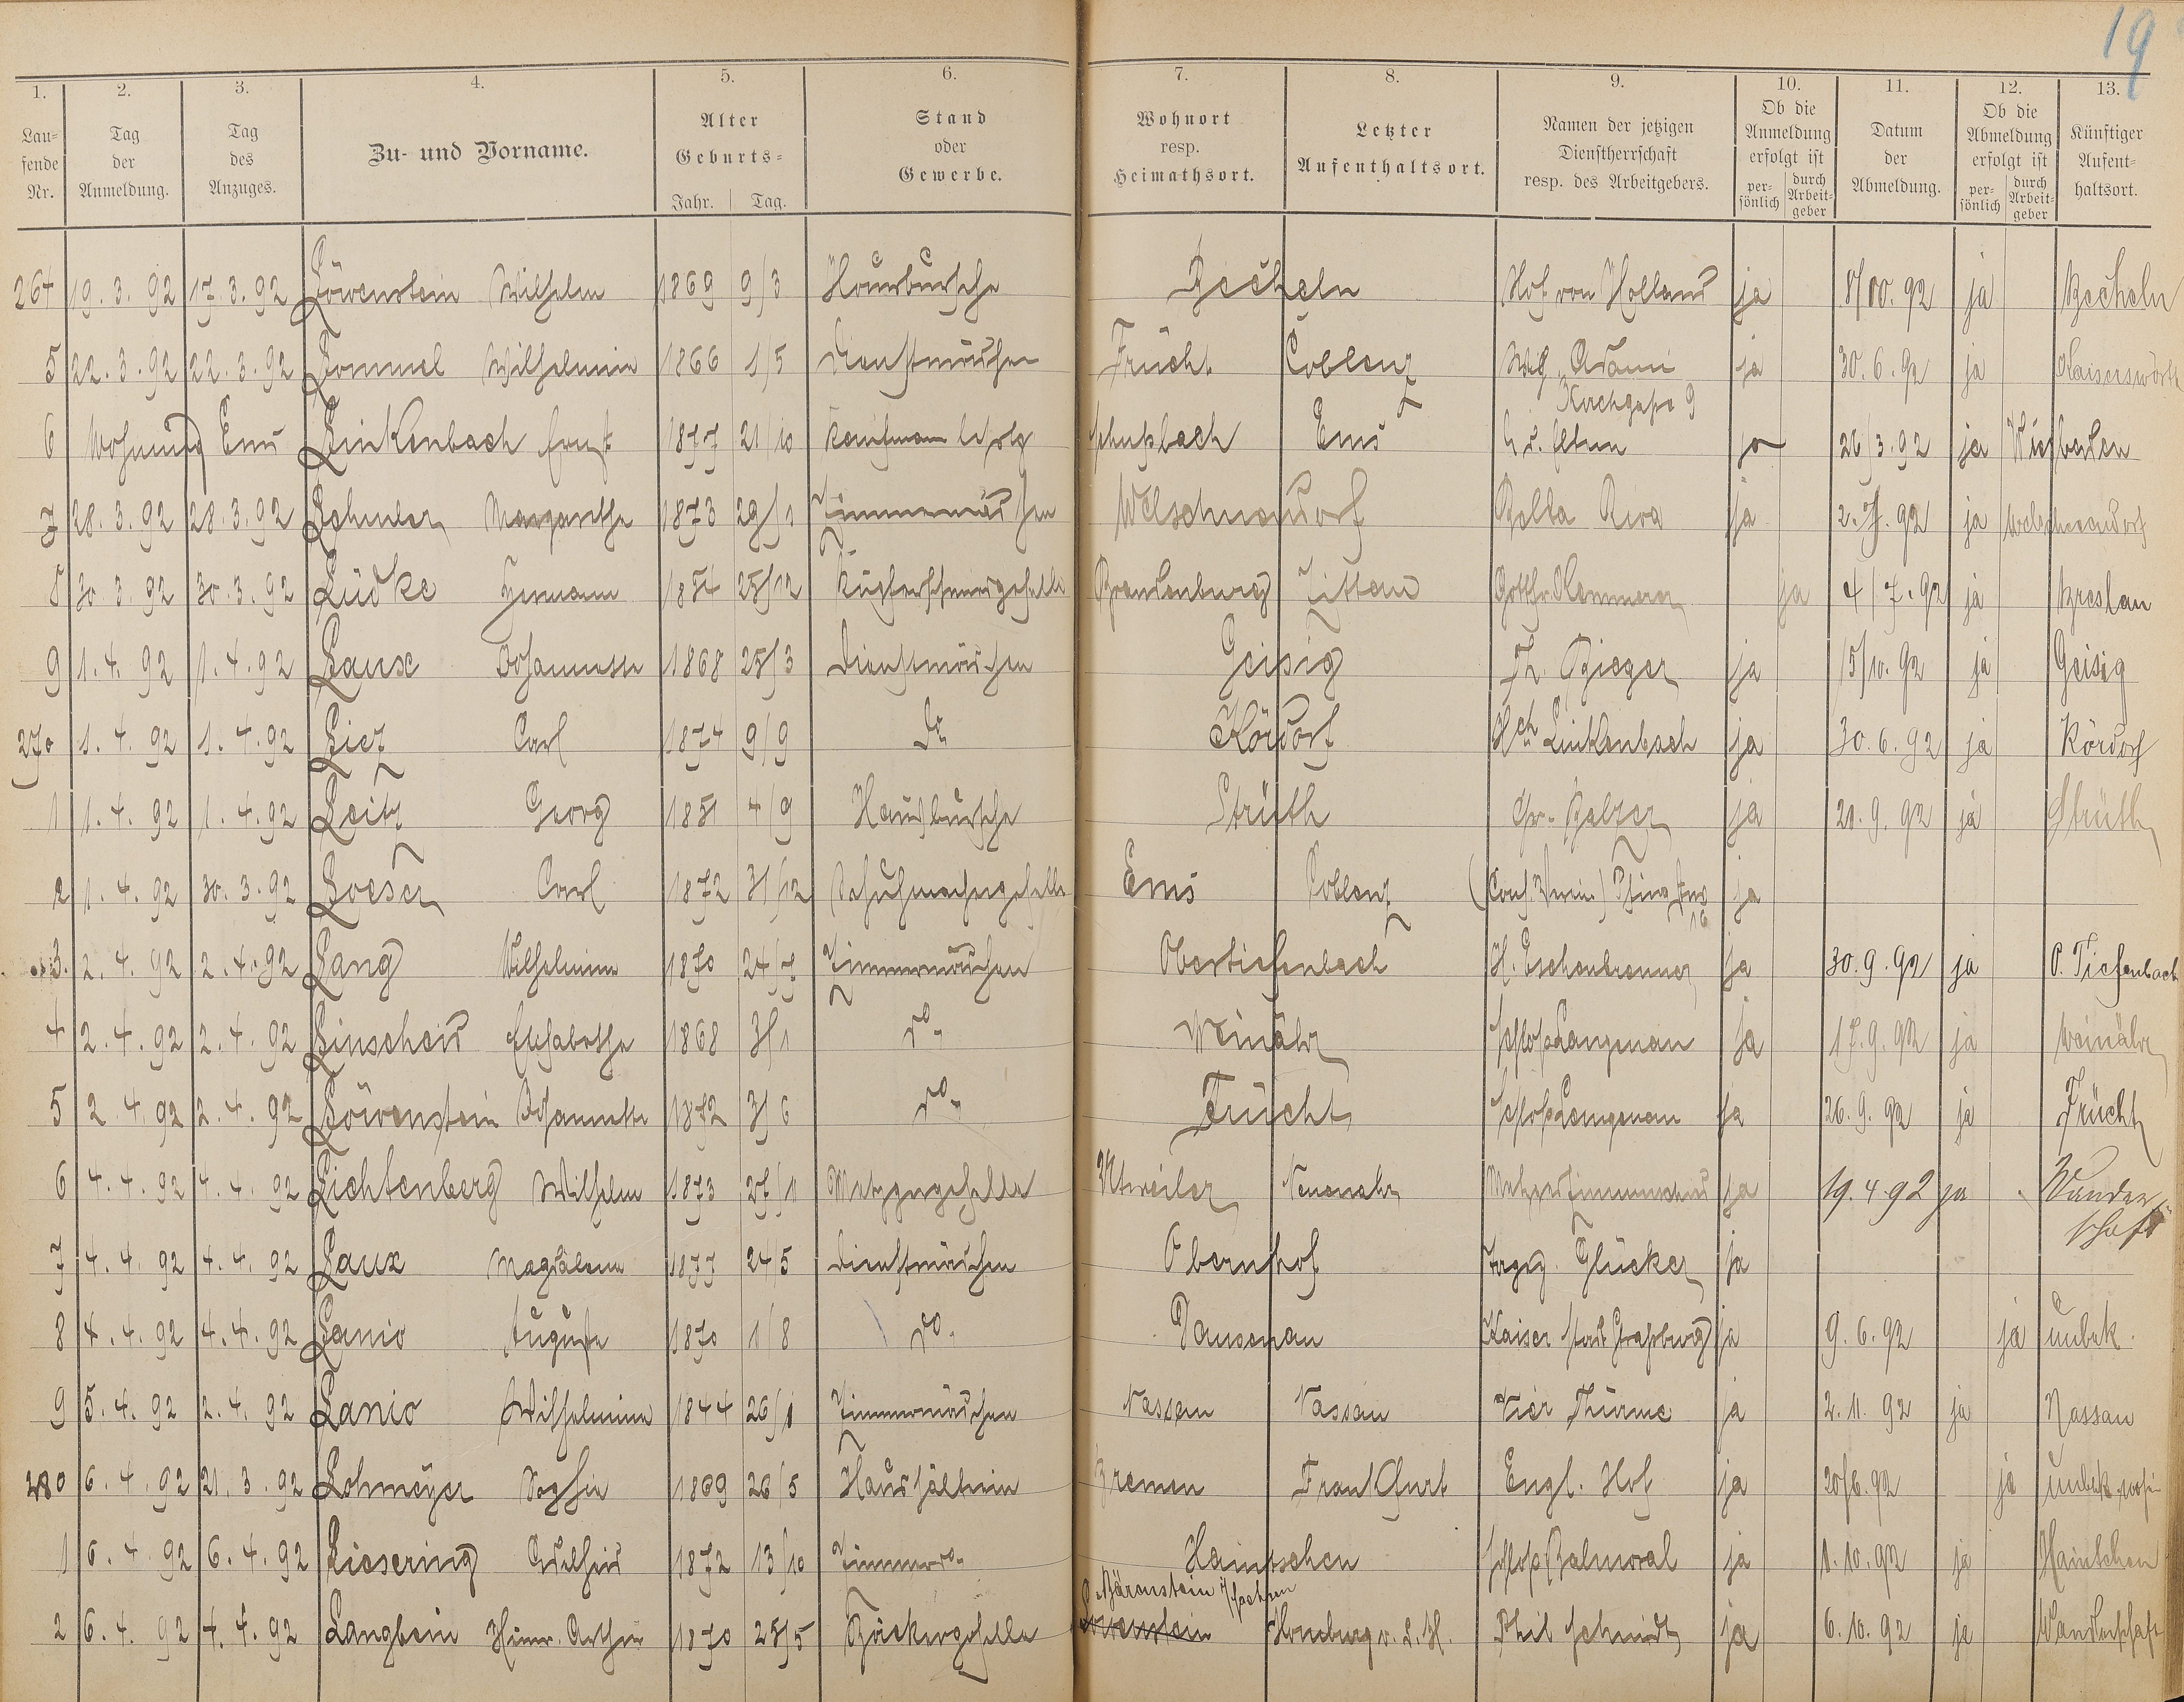 19
1. 2. 3. 4. 5. 6. 7. 8. 9. 10. 11. 12. 13.
Lau-
fende
Nr.
Tag
der
Anmeldung.
Tag
des
Anzuges.
Zu- und Vorname.
Alter
Geburts-
Jahr. Tag.
Stand
oder
Gewerbe.
Wohnort
resp.
Heimathsort.
Letzter
Aufenthaltsort.
Namen der jetzigen
Dienstherrschaft
resp. des Arbeitgebers.
Ob die
Anmeldung
erfolgt ist
per-
sönlich
durch
Arbeit-
geber
Datum
der
Abmeldung.
Ob die
Abmeldung
erfolgt ist
per-
sönlich
durch
Arbeit-
geber
Künftiger
Aufent-
haltsort.
264 19.3.92 17.3.92 Löwenstein Wilhelm 1869 9/3 Hausbursche Becheln Hof von Holland ja 8/10.92 ja Becheln
5 22.3.92 22.3.92 Lommel Wilhelmine 1866 1/5 Dienstmädchen Frücht Coblenz Adami ja 30.6.92 ja Kaiserswörth
Kirchgasse 9
6 Wohnung Ems Linkenbach Ernst 1877 21/10 Kaufmann Lehrlg Ems ja 26/3.92 ja Wiesbaden
7 28.3.92 28.3.92 Lehmler Margarethe 1873 29/1 Zimmermädchen Welschneudorf Bella Riva ja 2.7.92 ja Welschneudorf
8 30.3.92 30.3.92 Lüdke Hermann 1854 25/12 Brandenburg Zittau ja 4/7.92 ja Breslau
9 1.4.92 1.4.92 Laux Johannette 1868 25/3 Dienstmädchen Geisig Fr. Rieger ja 15/10.92 ja Geisig
270 1.4.92 1.4.92 Liez Carl 1874 9/9 do Kördorf Hch Linkenbach ja 30.6.92 ja Kördorf
1 1.4.92 1.4.92 Leitz Georg 1851 4/9 Hausbursche Strüth Gr. Balzer ja 21.9.92 ja Strüth
2 1.4.92 30.3.92 Loeser Carl 1872 31/12 Schuhmachergeselle Ems Coblenz (Cons. Verein) ja
3. 2.4.92 2.4.92 Lang Wilhelmine 1870 24/7 Zimmermädchen Obertiefenbach H. Eschenbrenner ja 30.9.92 ja O. Tiefenbach
4 2.4.92 2.4.92 Linscheid Elisabethe 1868 3/1 do. Weinähr Schloß Langenau ja 17.9.92 ja Weinähr
5 2.4.92 2.4.92 Löwenstein Johannette 1872 3/6 do. Frücht Schloß Langenau ja 26.9.92 ja Frücht
6 4.4.92 4.4.92 Lichtenberg Wilhelm 1873 27/1 Metzgergeselle Neuenahr ja 19.4.92 ja Wander-
schaft
7 4.4.92 4.4.92 Laux Magdalena 1877 24/5 Dienstmädchen Obernhof Glücker ja
8 4.4.92 4.4.92 Lanio Auguste 1870 1/8 do. Dausenau Kaiser ja 9.6.92 ja unbek.
9 5.4.92 2.4.92 Lanio Wilhelmine 1844 26/1 Zimmermädchen Nassau Nassau Vier Thürme ja 2.11.92 ja Nassau
280 6.4.92 21.3.92 Lohmeyer Sophie 1869 26/5 Haushälterin Bremen Frankfurt Engl. Hof ja 20/6.92 ja unbek. wohin
1 6.4.92 6.4.92 Liesering 1872 13/10 Zimmerm. Haintschen Schloß Balmoral ja 1.10.92 ja Haintchen
Bärenstein i/Sachsen
2 6.4.92 4.4.92 Langbein Heinr. Arthur 1870 25/5 Bäckergeselle Homburg v.d.H. Phil Schmidt ja 6.10.92 ja Wanderschaft